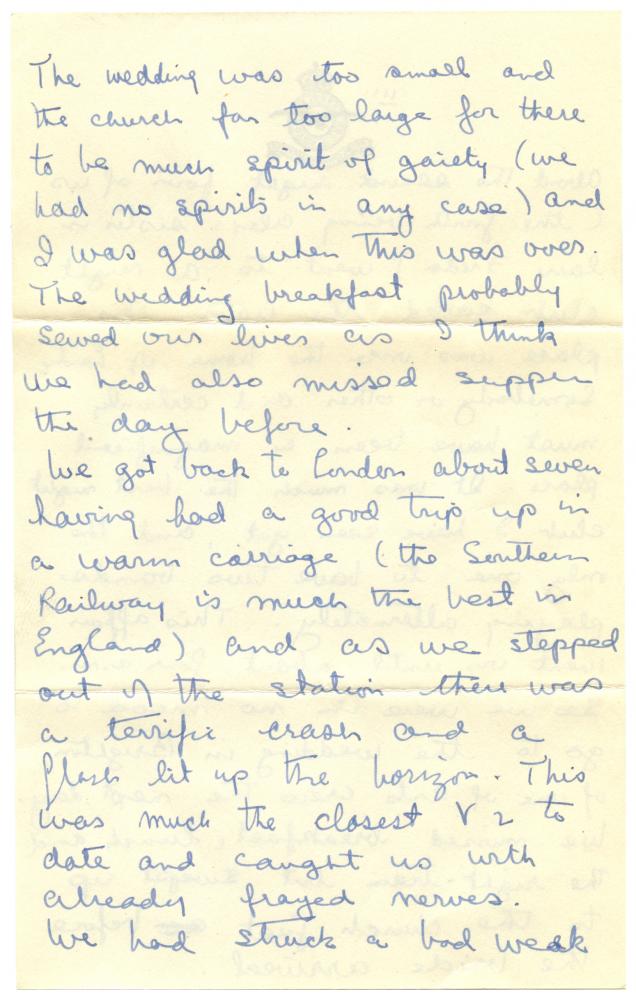 The wedding was too small and
the church far too large for there
to be much spirit of gaiety (we
had no spirits in any case) and
I was glad when this was over.
The wedding breakfast probably
saved our lives as I think
we had also missed supper
the day before.
We got back to London about seven
having had a good trip up in
a warm carriage (the Southern
Railway is much the best in
England) and as we stepped
out of the station there was
a terrific crash and a
flash lit up the horizon. This
was much the closest V2 to
date and caught us with
already frayed nerves.
We had struck a bad week